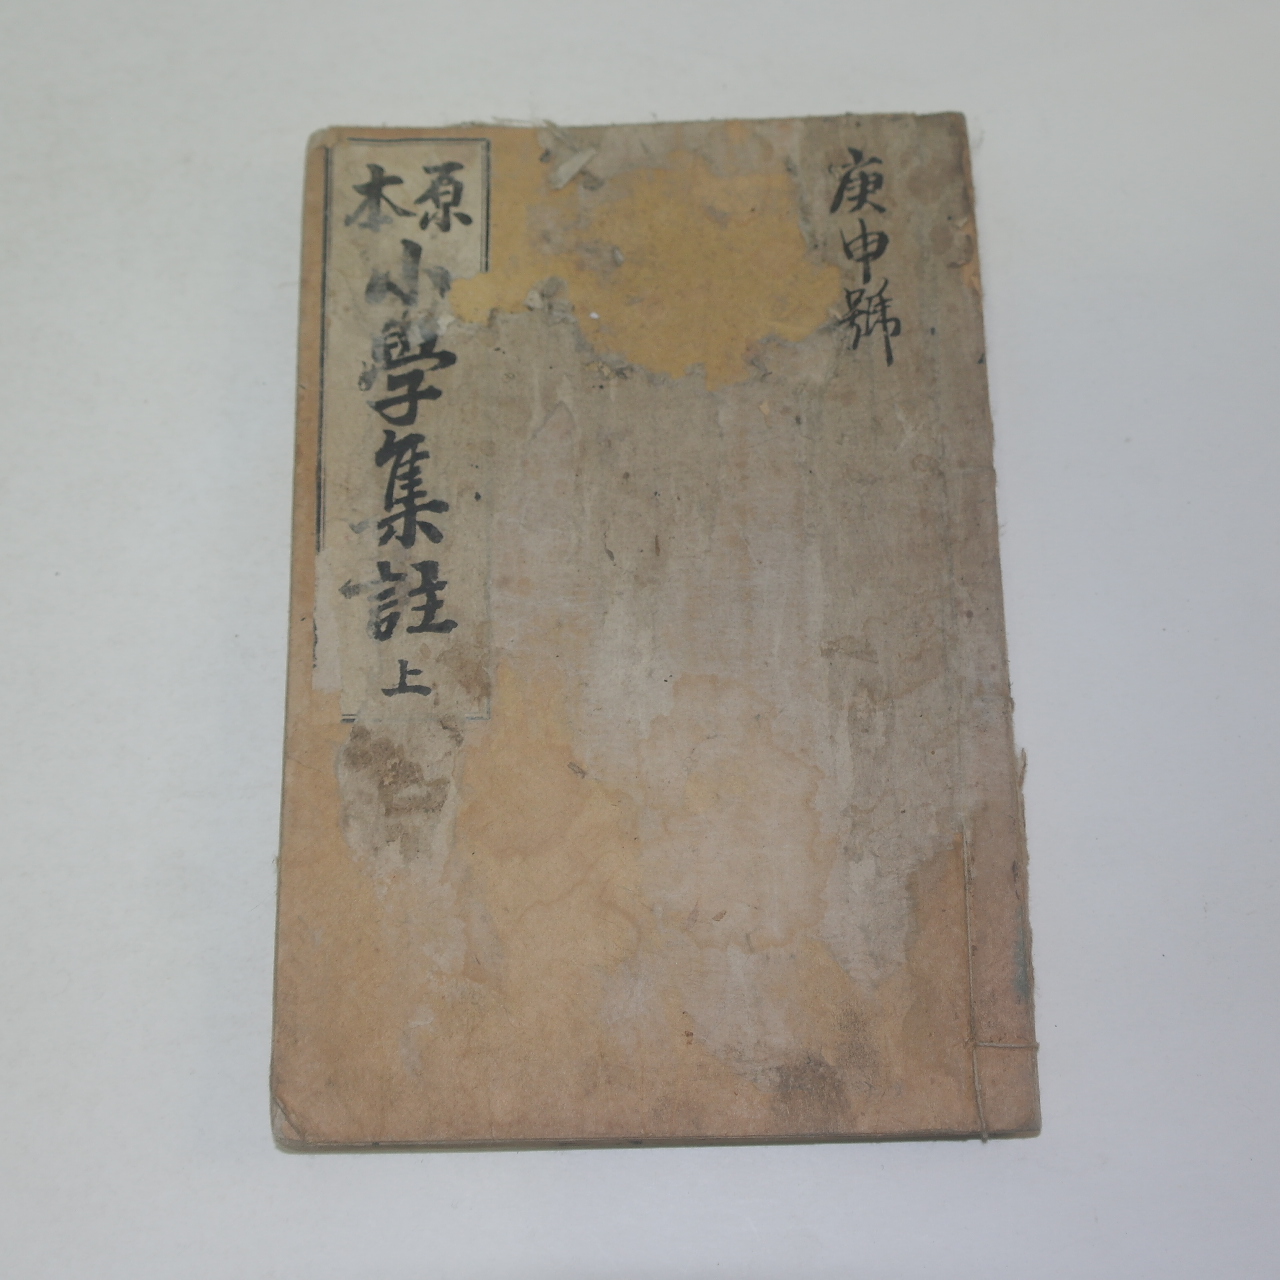 庚申號
原本
小學集註
上